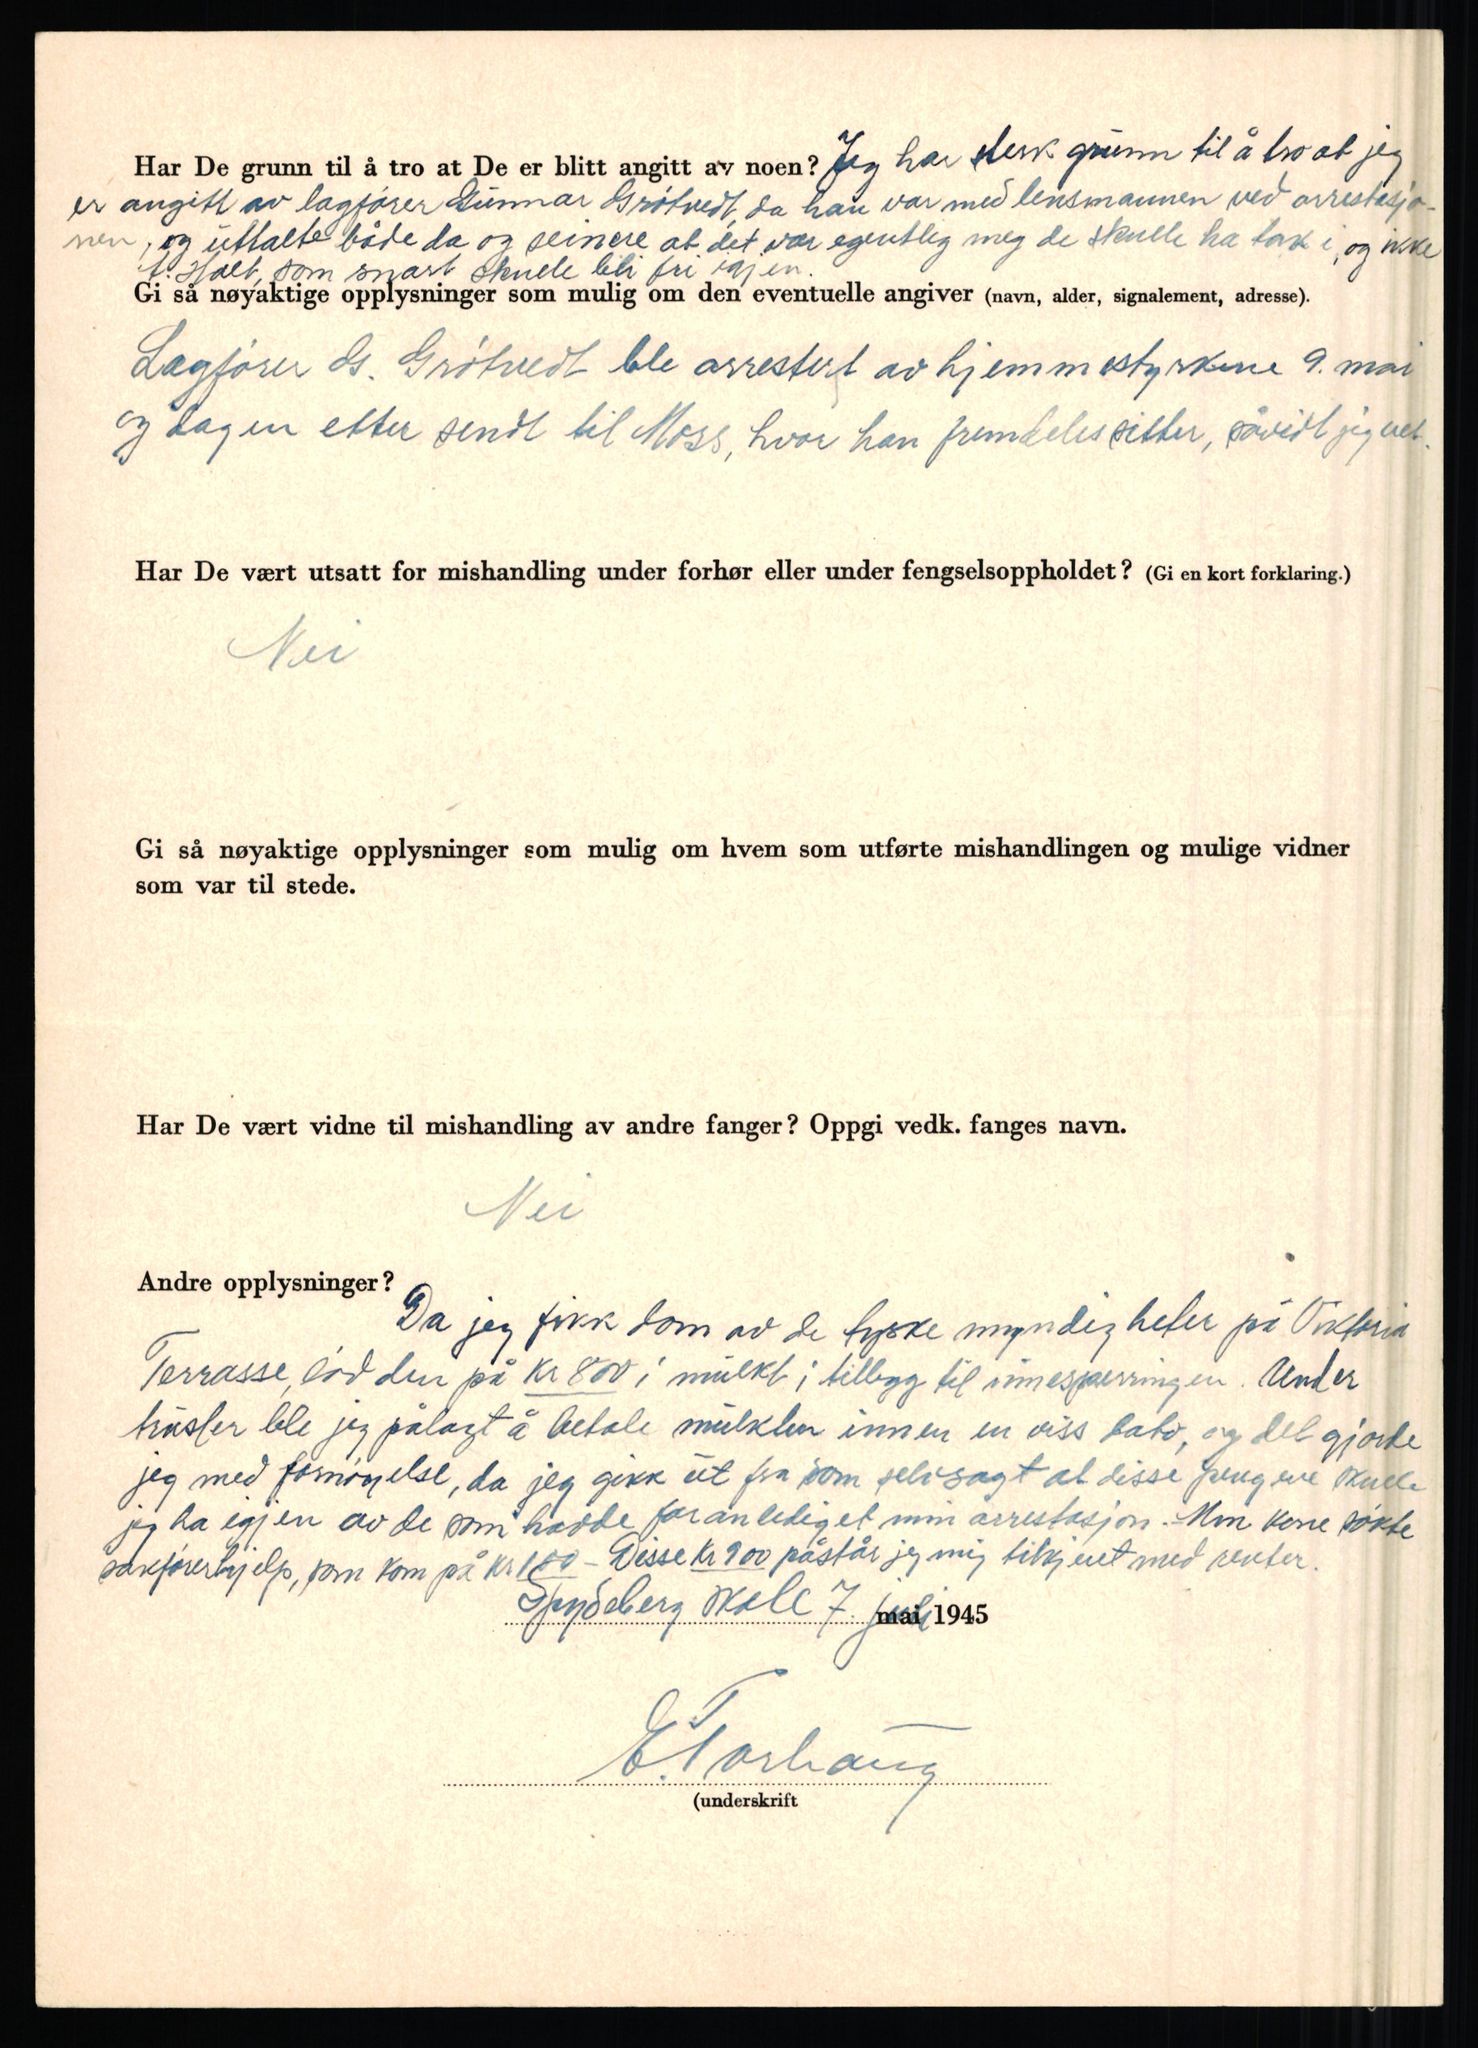 Har De grunn til å tro at De er blitt angitt av noen? Jeg har sterk grunn til å tro at jeg
er angitt av lagfører Gunnar Grötvedt, da han var med lensmannen ved arrestasjo-
nen, og uttalte både da og seinere at det var egentlig meg de skulle ha tak i, og ikke
t. Holt, som snart skulle bli fri igjen.
Gi så nøyaktige opplysninger som mulig om den eventuelle angiver (navn, alder, signalement, adresse).
Lagfører G. Grötvedt ble arrestert av hjemmestyrkene 9. mai
og dagen etter sendt til Moss, hvor han fremdeles sitter, såvidt jeg vet.
Har De vært utsatt for mishandling under forhør eller under fengselsoppholdet? (Gi en kort forklaring.)
Nei
Gi så nøyaktige opplysninger som mulig om hvem som utførte mishandlingen og mulige vidner
som var til stede.
Har De vært vidne til mishandling av andre fanger? Oppgi vedk. fanges navn.
Nei
Andre opplysninger?
Da jeg fikk dom av de tyske myndigheter på Viktoria
Terrasse, lød den på kr 800 i mulkt i tillegg til innesperringen. Under
trusler ble jeg pålagt å betale mulkten innen en viss dato, og det gjorde
jeg med fornøyelse, da jeg gikk ut fra som selvsagt at disse pengene skulle
jeg ha igjen av de som hadde foranlediget min arrestasjon. Min kone søkte
sakførerhjelp, som kom på kr 100 - Disse kr 900 påstår jeg mig tilkjent med renter.
Spydeberg skole 7. juli mai 1945
E. Torhaug
(underskrift